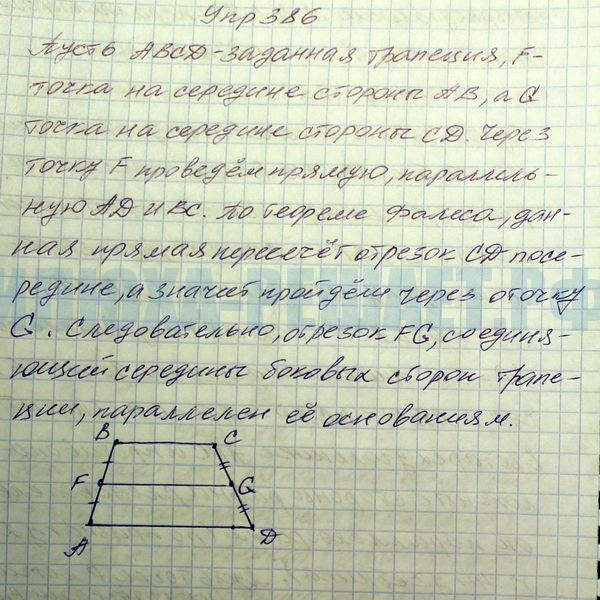 Упр 386
Пусть ABCD-заданная трапеция, F-
точка на середине стороны AB, а G
точка на середине стороны CD. Через
точку F проведём прямую, параллель-
ную AD и BC. По теореме Фалеса, дан-
ная прямая пересечёт отрезок CD посе-
редине, а значит пройдём через оточку
G. Следовательно, отрезок FG, соединя-
ющий середины боковых сторон трапе-
ции, параллелен её основаниям.
B C
F G
A D